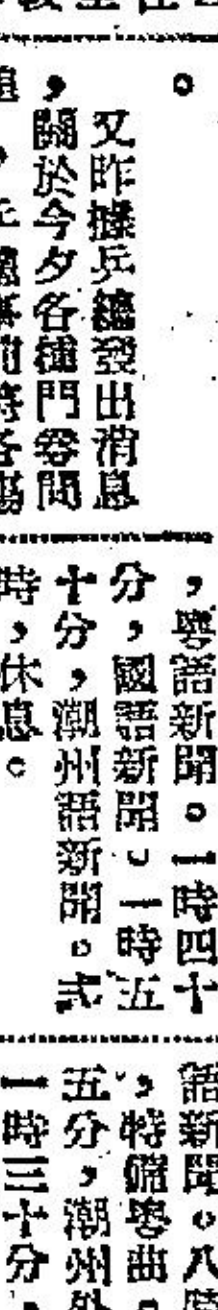 。
又昨據乒總發出消息
，關於今夕各種門券問
，粵語新聞。一時四十
分，國語新聞。一時五
十分，潮州語新聞。弍
時，休息。
語新聞。八時
，特備粵曲。
五分，潮州
一時三十分，